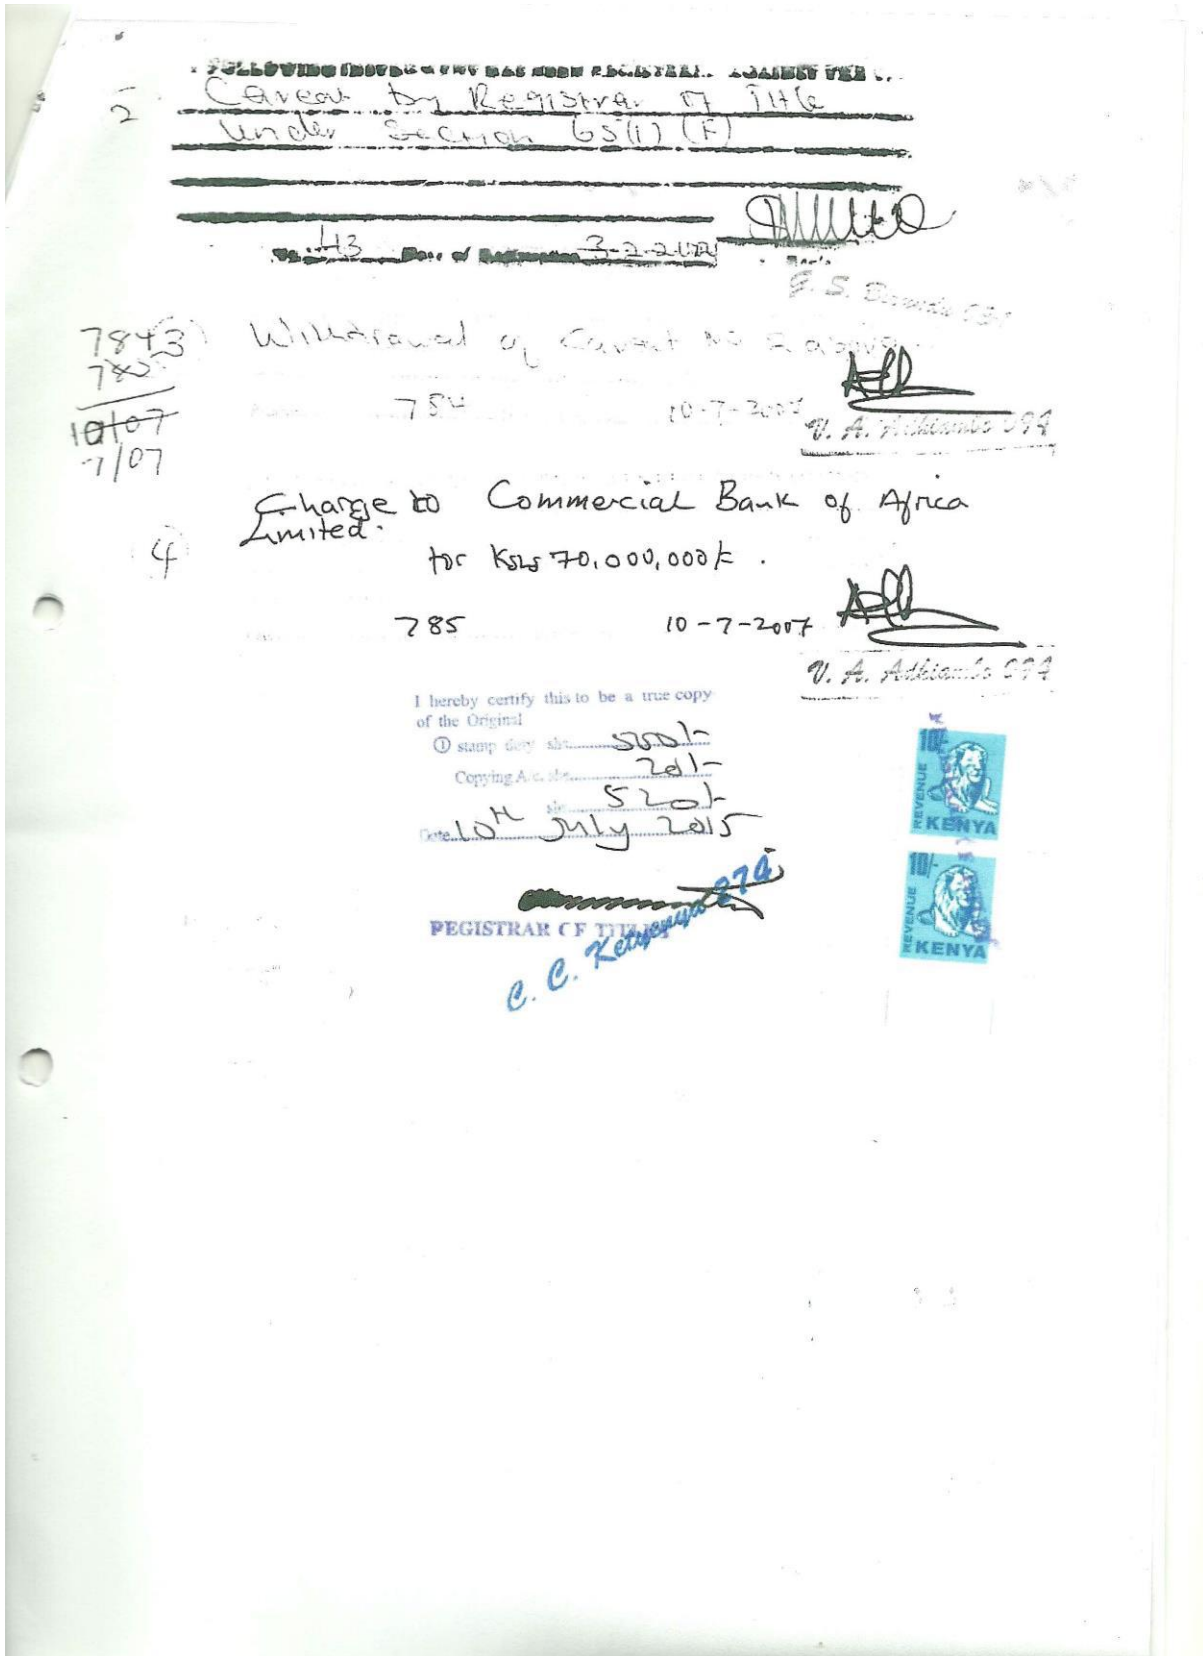 FOLLOWING HAS BEEN AGAINST
2 Caveat by Registrar of Title
Under Section 65(1) (F)
No. 43 Date of Registration 3-2-
G. S.
3 Withdrawal of Caveat No 2 above
784
785
10/07
7/07
784 10-7-2007
V. A. Adhiambo 094
Charge to Commercial Bank of Africa
Limited.
4
for Kshs 70,000,000/=.
785 10-7-2007
V. A. Adhiambo 094
I hereby certify this to be a true copy
of the Original
① stamp duty shs. 500/-
Copying A/c. shs. 20/-
shs. 520/-
Date 10th July 2015
REGISTRAR OF TITLES
C. C. 274
REVENUE
KENYA
REVENUE
KENYA